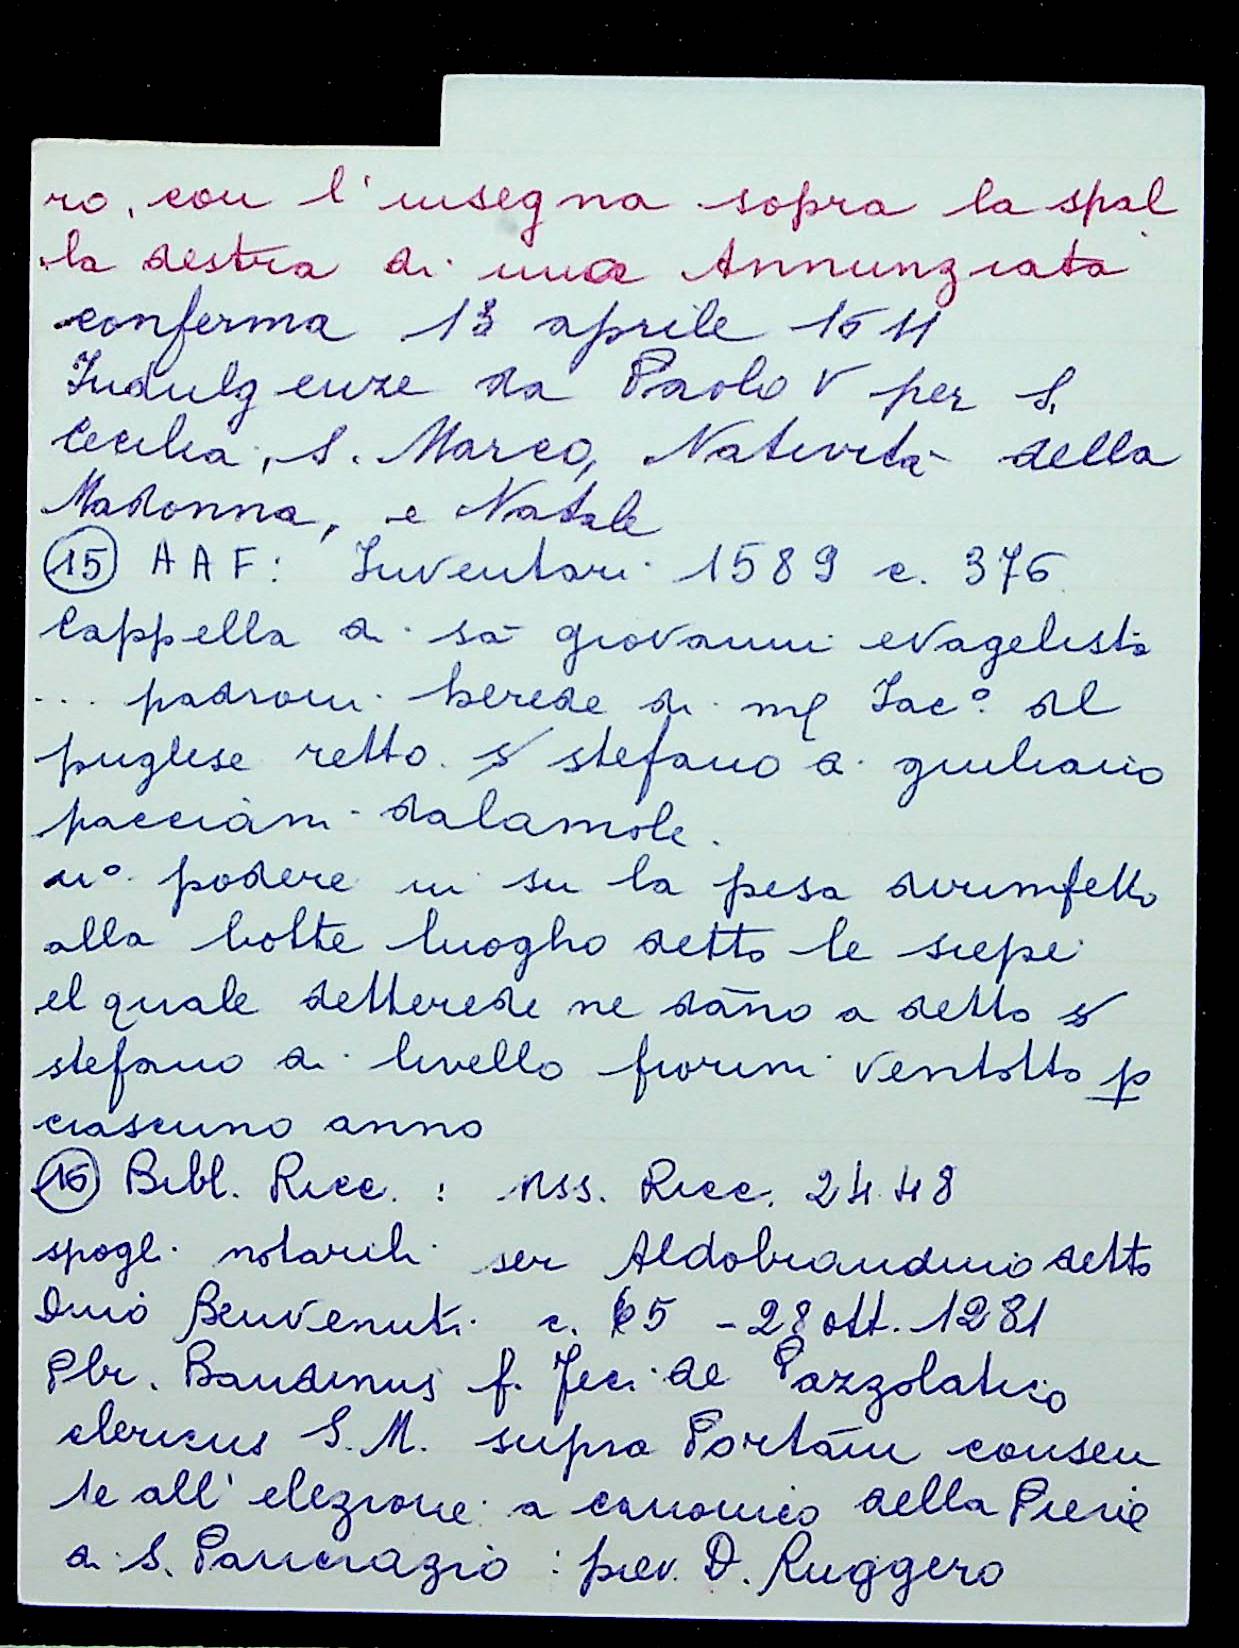 ro, con l'insegna sopra la spal
la destra di una Annunziata
conferma 13 aprile 1511
Indulgenze da Paolo V per S.
Cecilia, S. Marco, Natività della
Madonna, e Natale
15 AAF: Inventari 1589 c. 376
Cappella di sā giovanni evagelista
... padroni herede di mͅ Jac° del
puglese retto. s stefano a giuliano
pacciani dalamole.
un° podere in su la pesa dirimfetto
alla botte luogho detto le siepi
el quale detterede ne dāno a detto s
stefano di livello fiorini ventotto p
ciascuno anno
16 Bibl. Ricc. : Mss. Ricc. 2448
spogli notarili ser Aldobrandino detto
Dino Benvenuti c. 5 - 28 ott. 1281
Pbr. Bandinus f. Jeci de Pazzolatico
clericus S.M. supra Portām consen
te all'elezione a canonico della Pieve
di S. Pancrazio : piev. D. Ruggero